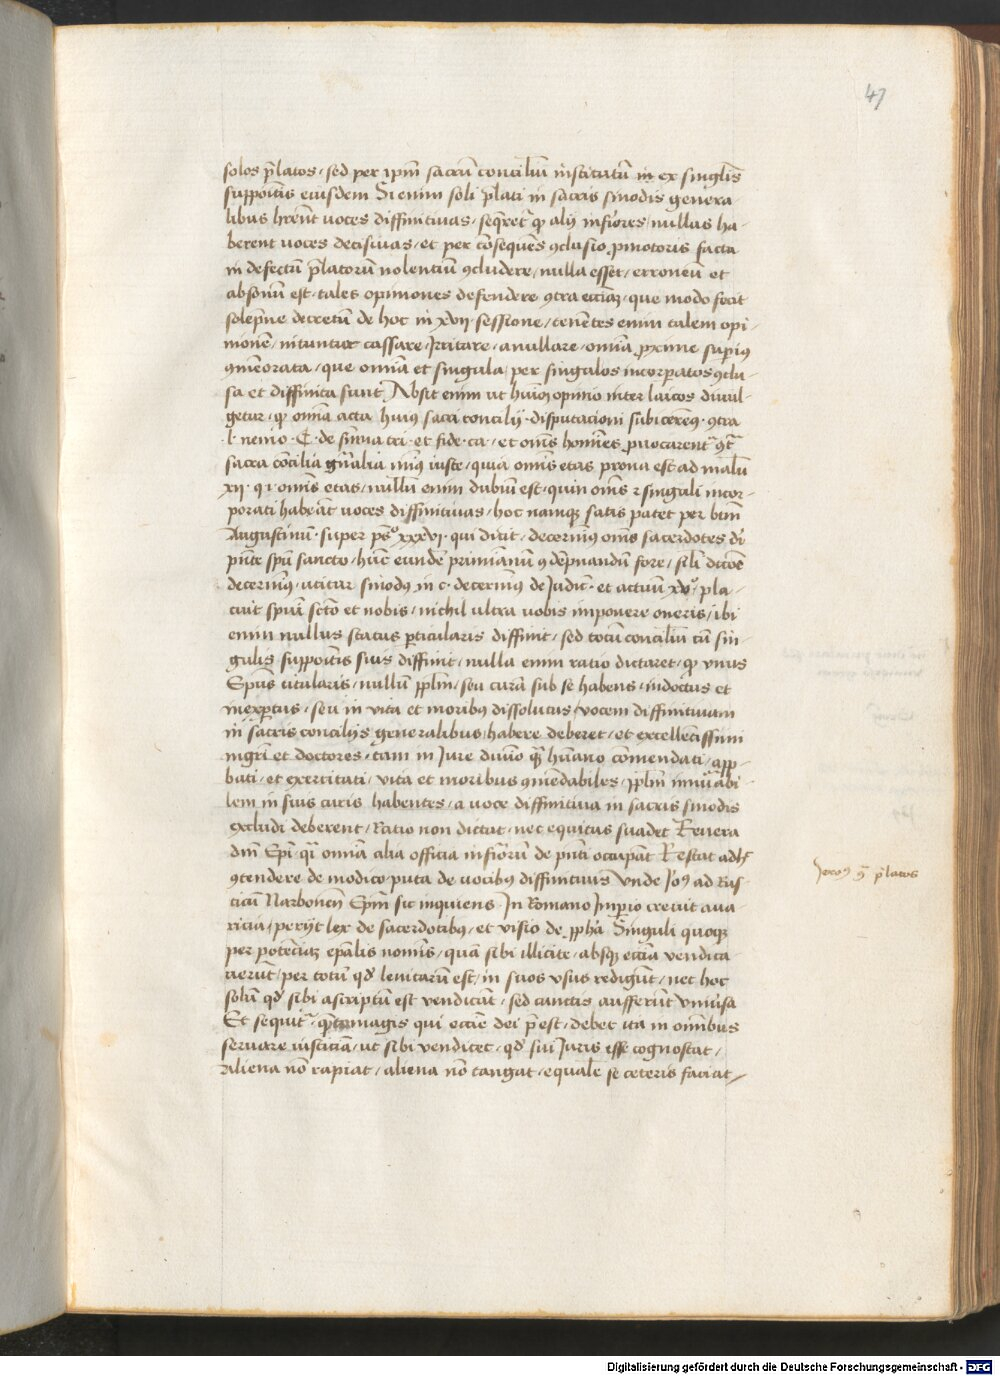 47
solos p̄latos, sed per ip̄m sacrū conciliū institutū in ex singlis
suppoitis eiusdem Si enim soli p̄lati in sacris sinodis genera
libus hr̄ent voces diffinitiuas, seqr̄et̄ ꝙ alij inf̄iores nullas ha-
berent uoces decisiuas, et per cōsequēs ꝯclusio ꝓmotoris facta
in defectū p̄latorū nolentiū ꝯcludere, nulla esset, erroneū et
absonū est, tales opiniones defendere ꝯtra ecciāꝫ, que modo fecit
solepne decretū de hoc in xvij sessione, tenētes enim talem opi-
nionē, nituntur cassare, Irritare, anullare, omīa ꝓxime sup̄ius
ꝯmēorata, que omīa et singula, per singulos incorp̄atos ꝯclu-
sa et diffinita sunt Absit enim ut huiꝰ opinio inter laicos diuul-
getur, ꝙ omīa acta huius sacri concilij disputacioni subicerēt, ꝯtra
l. nemo. C. de sūma tri. et fide. ca, et omēs homīes ꝓuocarent̄ ꝯt̄
sacra cōcilia gn̄alia minꝰ iuste, quia omīs etas prona est ad malū
xij. q. i. omīs etas, nullū enim dubiū est, quin omēs ⁊ singuli incor-
porati habeāt uoces diffinitiuas, hoc namqꝫ satis patet per btm̄
Augustinū super psͦ xxxvi. qui dicit, decernimꝰ omēs sacerdotes dī
pn̄te spū sancto, hūc eundē primianū ꝯdēpnandū fore, sili dictōe
decernimꝰ, utitur sinodus in c. decernimꝰ de Judic̄. et actuū xvͦ, pla-
cuit spūi sctō et nobis, nichil ultra uobis imponere oneris, ibi
enim nullus status ꝑticularis diffinit, sed totū conciliū cū sin-
gulis suppoitis suis diffinit, nulla enim ratio dictaret, ꝙ vnus
Ep̄us titularis, nullū pplm̄, seu curā sub se habens, indoctus et
inexꝑtus, seu in vita et moribꝰ dissolutus, vocem diffinitiuam
in sacris concilijs generalibus habere deberet, et excellētissimi
mgr̄i et doctores, tam in Jure diuīo qꝫ humano cōmendati, app-
bati, et exercitati, vita et moribus ꝯmēdabiles, pplm̄ innu̅abi
lem in suis curis habentes, a uoce diffinitiua in sacris sinodis
excludi deberent, Ratio non dictat, nec equitas suadet Reuera
dn̄i Ep̄i qͥ omīa alia officia inf̄iorū de pn̄ti occupāt Restat adhͨ
ꝯtendere de modico, puta de uocibꝰ diffinitiuis Vnde Joꝰ ad Rus-
ticū Narbonen̄ Ep̄m sic inquiens. In Romano Imꝑio creuit aua
ricia, perijt lex de sacerdotibꝰ, et visio de ꝓpha Singuli quoqꝫ
per potenciaꝫ ep̄alis nominis, quā sibi illicite, absqꝫ eccīa vendica
uerūt, per totū qd̄ leuitarū est, in suos vsus redigūt, nec hoc
solū qd̄ sibi ascriptū est vendicāt, sed cunctis aufferūt vniu̅sa
Et sequit̄ magis qui eccīe dei p̄est, debet ita in omībus
seruare iusticiā, ut sibi vendicet, qd̄ sui Juris esse cognoscat,
aliena nō rapiat, aliena nō tangat, equalē se ceteris faciat,
Jeroꝰ ꝯ̄ p̄latos
Digitalisierung gefördert durch die Deutsche Forschungsgemeinschaft - DFG